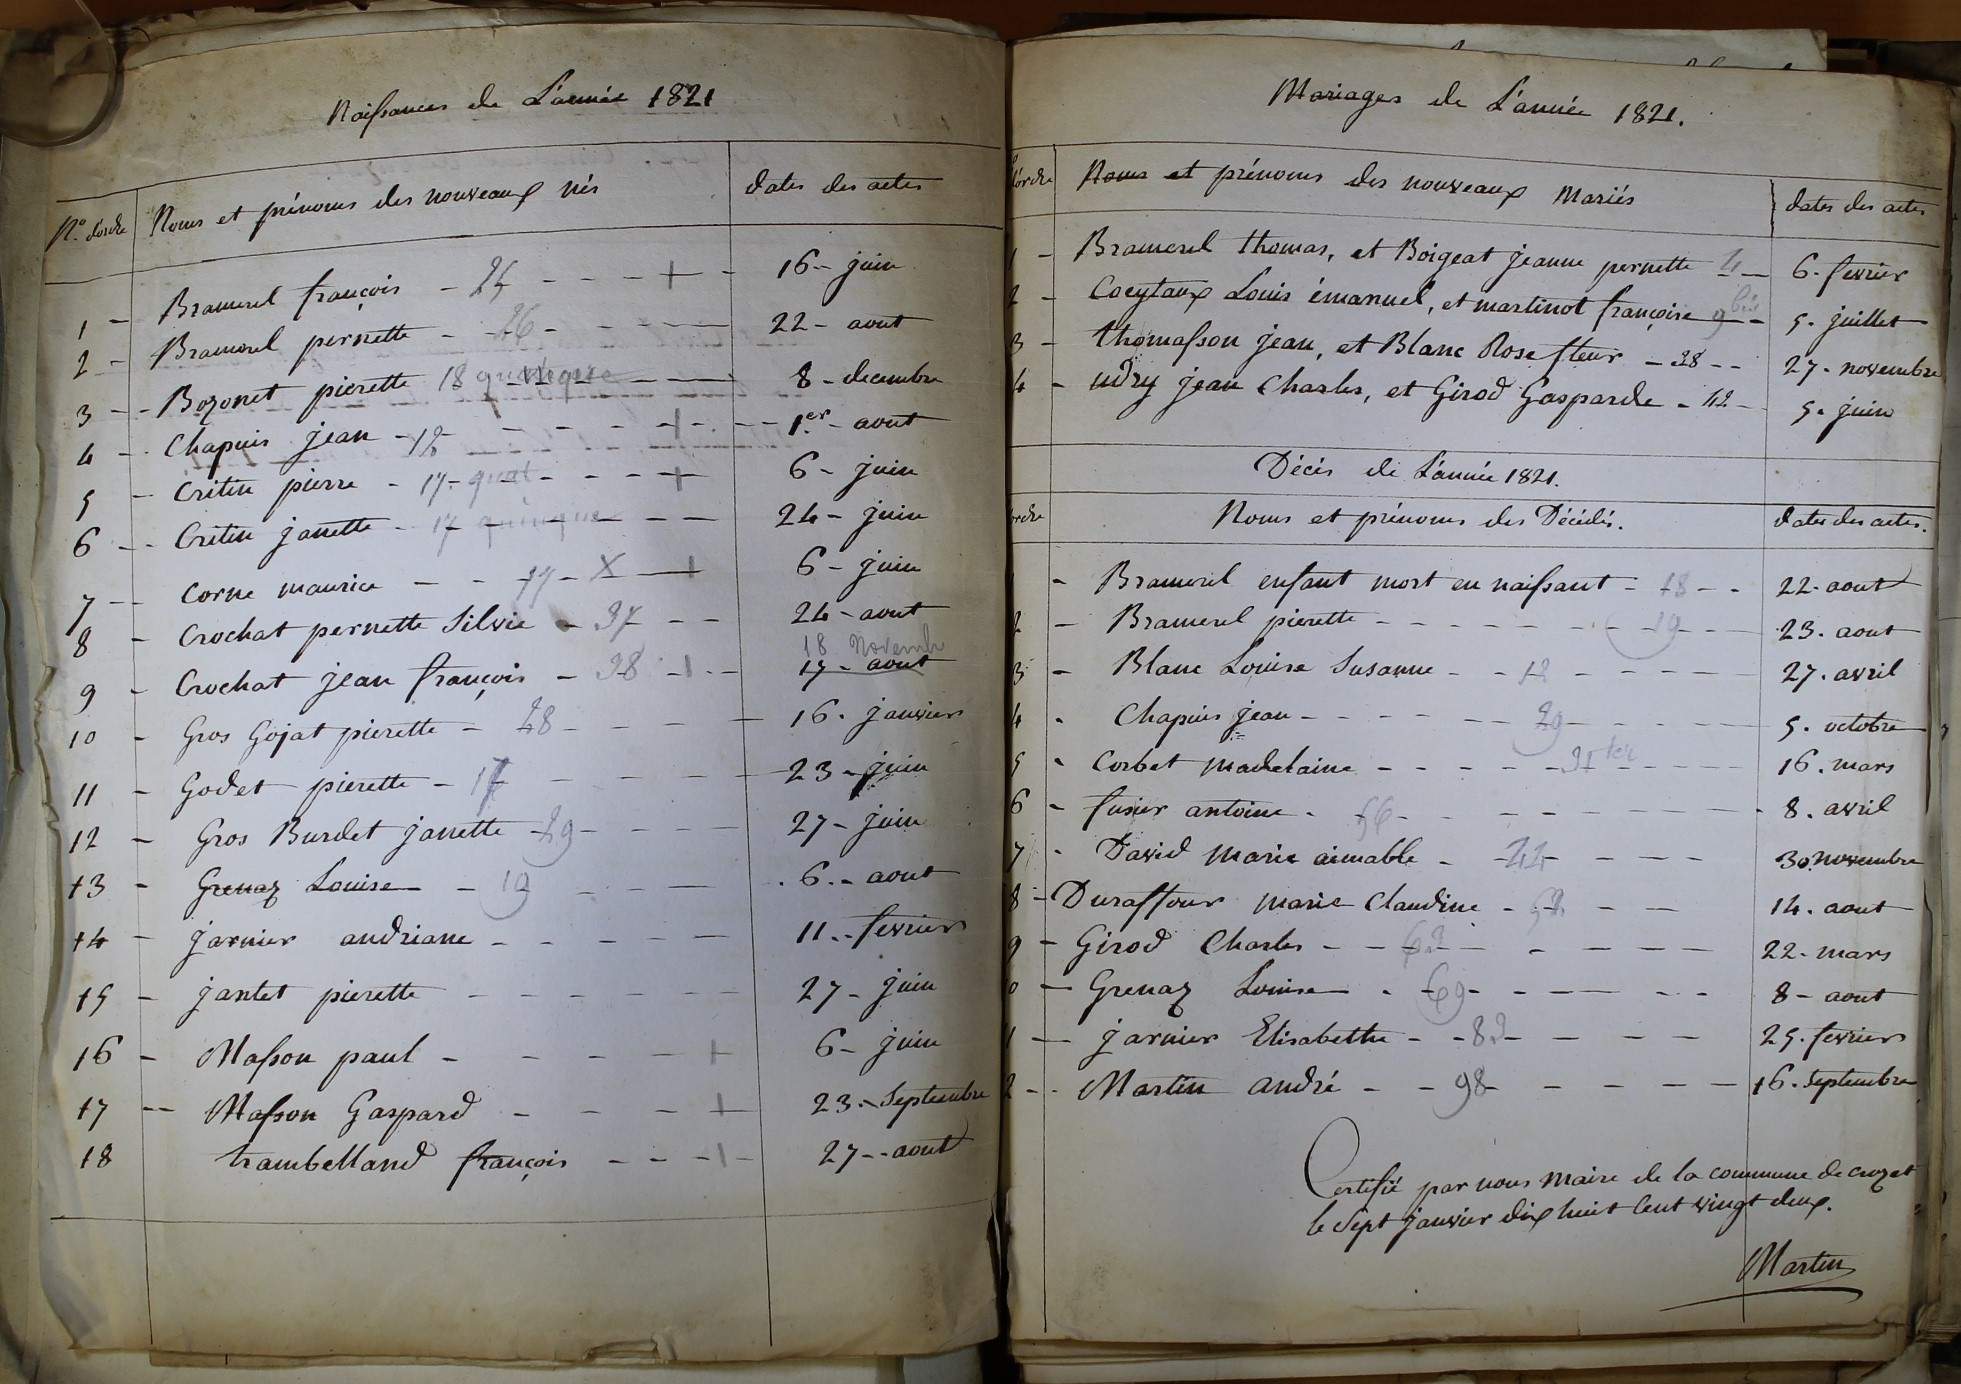 Naissances de L'année 1821
N.o d'ordre Noms et prénoms des nouveaux nés dates des actes
1 - Bramerel françois - 25 - - - + - 16 - juin
2 - Bramerel pernette - 26 - - - - 22 - aout
3 - - Bozonet pierette 18 quinque - - 8 - decembre
4 - - Chapuis jean - 12 - - - - + - - - 1.er - aout
5 - Critin pierre - 17 - quat - - - + 6 - juin
6 - - Critin janette - 17 quinque - - 24 - juin
7 - - Corne maurice - - 77 - X - + 6 - juin
8 - Crochat pernette Silvie - 37 - - 24 - aout
18 Novembr
9 - Crochat jean françois - 38 - + - - 17 - aout
10 - Gros Gojat pierette - 28 - - - - 16 . janvier
11 - Godet pierette - 17 - - - - 23 - juin
12 - Gros Burdet janette - 29 - - - - 27 - juin
13 - Grenaz Louise - - 19 - - - . 6 . - aout
14 - jarnier andriane - - - - - - 11 . - fevrier
15 - jantet pierette - - - - - - 27 - juin
16 - Masson paul - - - - - + 6 - juin
17 - - Masson Gaspard - - - - + 23 . - Septembre
18 trambelland françois - - - + - 27 - - aout
Mariages de L'année 1821.
d'ordre Noms et prénoms des nouveaux Mariés dates des actes
1 - Bramerel thomas, et Boigeat jeanne pernette 4 - 6 . fevrier
2 - Coeytaux Louis émanuel, et martinot françoise 9 bis - 5 . juillet
3 - thomasson jean, et Blanc Rose fleur - 38 - - 27 . novembre
4 - udry jean Charles, et Girod Gasparde - 42 - 5 . juin
Décés de L'année 1821.
ordre Noms et prénoms des Décédés. dates des actes.
1 - Bramerel enfant mort en naissant - 18 - - 22 . aout
2 - Bramerel pierette - - - - - - 19 - - - 23 . aout
3 - Blanc Louise Susanne - - 12 - - - - - 27 . avril
4 . Chapuis jean - - - - - - 29 - - - - - 5 . octobre
5 . Corbet madelaine - - - - - 31 ter - - - - 16 . mars
6 - fusier antoine . 56 - - - - - - - 8 . avril
7 . David marie aimable - 44 - - - - 30 . novembre
8 - Duraffour marie Claudine - 52 - - - 14 . aout
9 - Girod Charles - - 62 - - - - - 22 . mars
0 - Grenaz Louise - . 69 - - - - - - 8 - aout
1 - jarnier Elisabethe - - 82 - - - - - 25 . fevrier
2 - - Martin andré - - 98 - - - - - 16 . Septembre
Certifié par nous Maire de la commune de crozet
le Sept janvier dix huit Cent vingt deux.
Martin